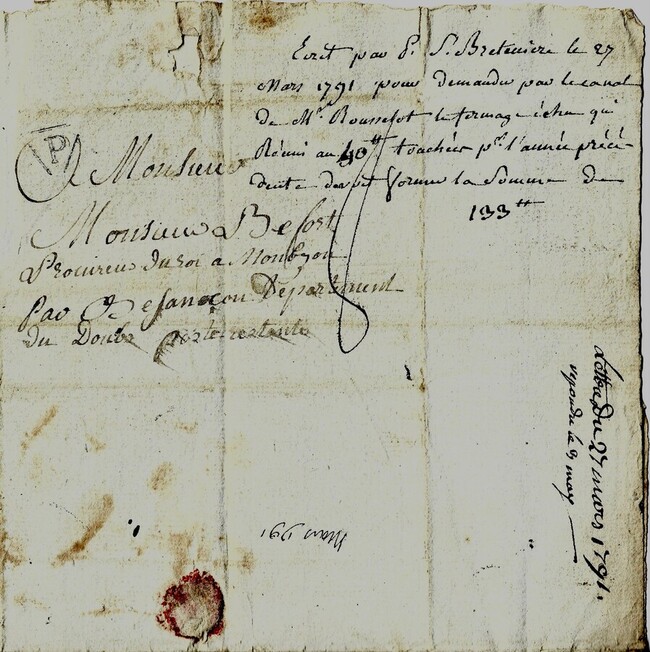 Ecrit par P. S. Bretenière le 27
Mars 1791 pour demander par le canal
de Mr. Rousselot le fermage échu qui
Réuni au 40tt touchées pr. l'année précé
dente devoit former la Somme de
133tt
P
A Monsieur
Monsieur Befort
Procureur du roi a
Par Besançon Département
du Doubs poste restante
Lettre du 27 mars 1791.
repondu le 9 may
Mars 1791